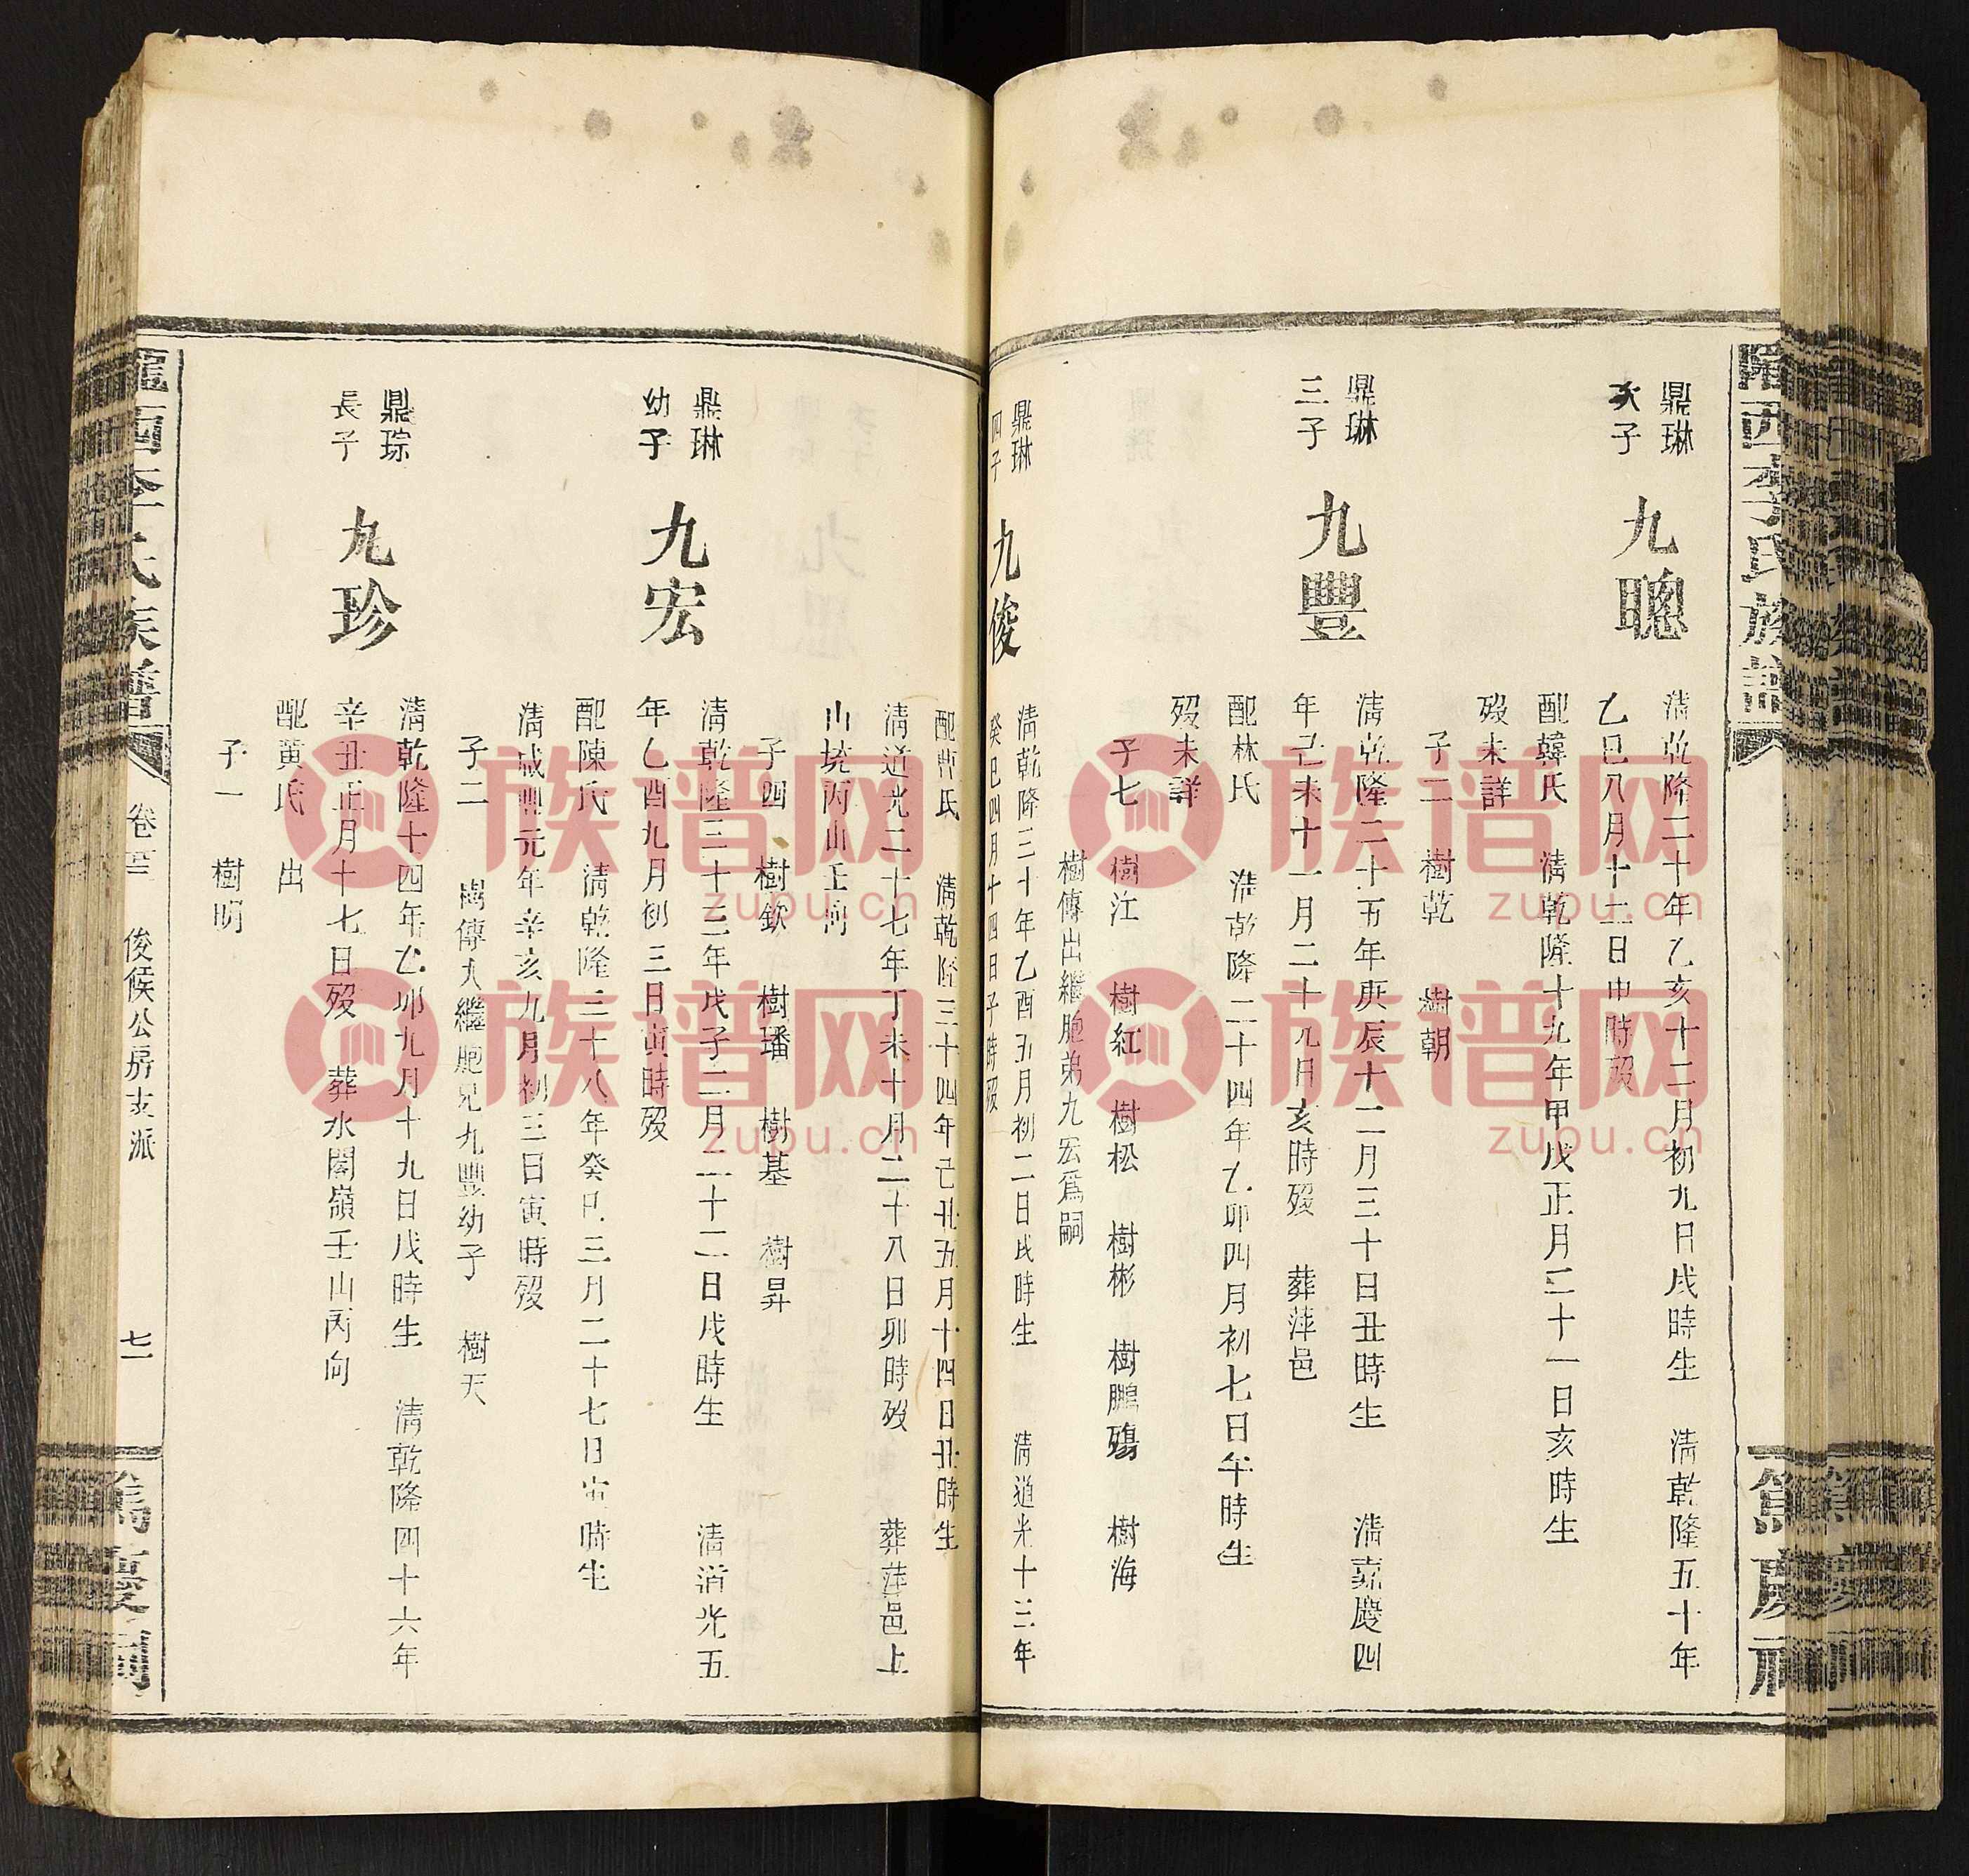 隴西李氏族譜
篤慶祠
鼎琳
次子
九聰
清乾隆二十年乙亥十二月初九日戌時生 清乾隆五十年
乙巳八月十二日申時歿
配韓氏 清乾隆十九年甲戌正月三十一日亥時生
歿未詳
子二 樹乾 樹朝
鼎琳
三子
九豐
清乾隆二十五年庚辰十二月三十日丑時生 清嘉慶四
年己未十一月二十九日亥時歿 葬萍邑
配林氏 清乾隆二十四年乙卯四月初七日午時生
歿未詳
子七 樹江 樹紅 樹松 樹彬 樹鵬殤 樹海
樹傳出繼胞弟九宏爲嗣
鼎琳
四子
九俊
清乾隆三十年乙酉五月初二日戌時生 清道光十三年
癸巳四月十四日子時歿
配曹氏 清乾隆三十四年己丑五月十四日丑時生
清道光二十七年丁未十月二十八日卯時歿 葬萍邑上
山塘丙山壬向
子四 樹欽 樹璠 樹基 樹昇
鼎琳
幼子
九宏
清乾隆三十三年戊子二月二十二日戌時生 清道光五
年乙酉九月初三日寅時歿
配陳氏 清乾隆三十八年癸巳三月二十七日寅時生
清咸豐元年辛亥九月初三日寅時歿
子二 樹傳入繼胞兄九豐幼子 樹天
鼎琮
長子
九珍
清乾隆十四年乙卯九月十九日戌時生 清乾隆四十六年
辛丑正月十七日歿 葬水閣嶺壬山丙向
配黃氏 出
子一 樹明
隴西李氏族譜
俊候公房支派
七一
篤慶祠
族谱网
zupu.cn
族谱网
zupu.cn
族谱网
zupu.cn
族谱网
zupu.cn